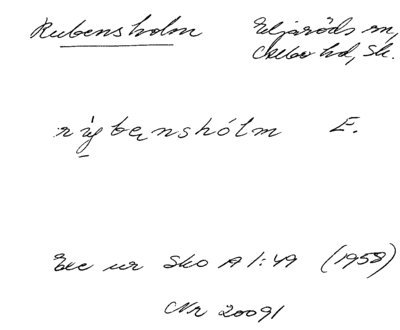 Rubensholm Eljaröds sn,
Albo hd, Sk.
rubenshólm E.
Exc ur Sko A 1:49 (1958)
Nr 20091